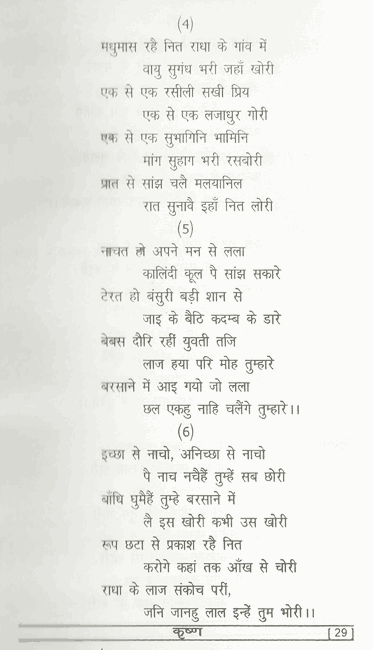 (4)
मधुमास रहै नित राधा के गांव में
वायु सुगंध भरी जहाँ खोरी
एक से एक रसीली सखी प्रिय
एक से एक लजाधुर गोरी
एक से एक सुभागिनि भामिनि
मांग सुहाग भरी रसबोरी
प्रात से सांझ चलै मलयानिल
रात सुनावै इहाँ नित लोरी
(5)
नाचत हो अपने मन से लला
कालिंदी कूल पै सांझ सकारे
टेरत हो बंसुरी बड़ी शान से
जाइ के बैठि कदम्ब के डारे
बेबस दौरि रहीं युवती तजि
लाज हया परि मोह तुम्हारे
बरसाने में आइ गयो जो लला
छल एकहु नाहि चलैंगे तुम्हारे।।
(6)
इच्छा से नाचो, अनिच्छा से नाचो
पै नाच नचैहैं तुम्हें सब छोरी
बाँधि घुमैहैं तुम्हे बरसाने में
लै इस खोरी कभी उस खोरी
रूप छटा से प्रकाश रहै नित
करोगे कहां तक आँख से चोरी
राधा के लाज संकोच परीं,
जनि जानहु लाल इन्हें तुम भोरी।।
कृष्ण [ 29 ]